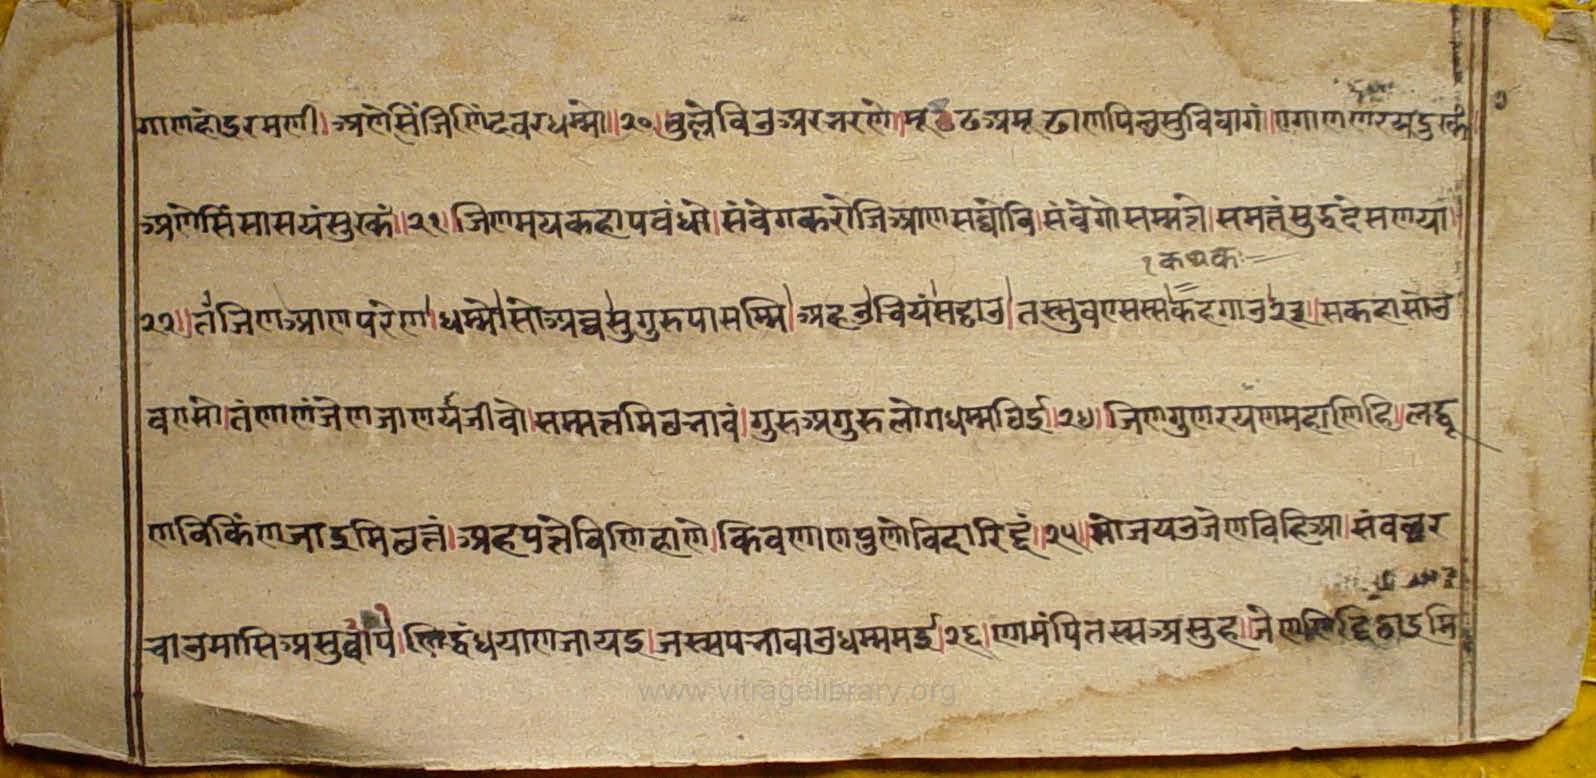 गाणहोइरमणी।अणेसिंजिणिंदवरधम्मो॥२०॥तुल्लेविउअरभरणे।मूढअमूढाणपिच्छसुविवागं।एगाणणरयदुक्खं
अणेसिंसासयंसुक्खं॥२१॥जिणमयकहापबंधो।संवेगकरोजिआणसव्वोवि।संवेगोसम्मत्ते।समत्तंसुद्धदेसणया।
१कथकः
२२॥तंजिणआणपरेण।धम्मोसोअव्वसुगुरुपासम्मि।अहउचियंसड्ढाउ।तस्सुवएसस्सकहगाउ२३॥सकहासोउ
वएसो।तंणाणंजेणजाणएजीवो।सम्मत्तमिच्छभावं।गुरुअगुरुलोगधम्मविई॥२४॥जिणगुणरयणमहाणिहि।लद्धू
णविकिंणजाइमिच्छत्तं।अहपत्तेविणिहाणे।किवणाणपुणोविदारिद्दं॥२५॥सोजयउजेणविहिआ।संवच्छर
चाउमासिअसुपव्वा।णिद्धंधयाणजायइ।जस्सपभावाउधम्ममई॥२६॥णामंपितस्सअसुह।जेणणिद्दिट्ठाइमि
www.vitragelibrary.org